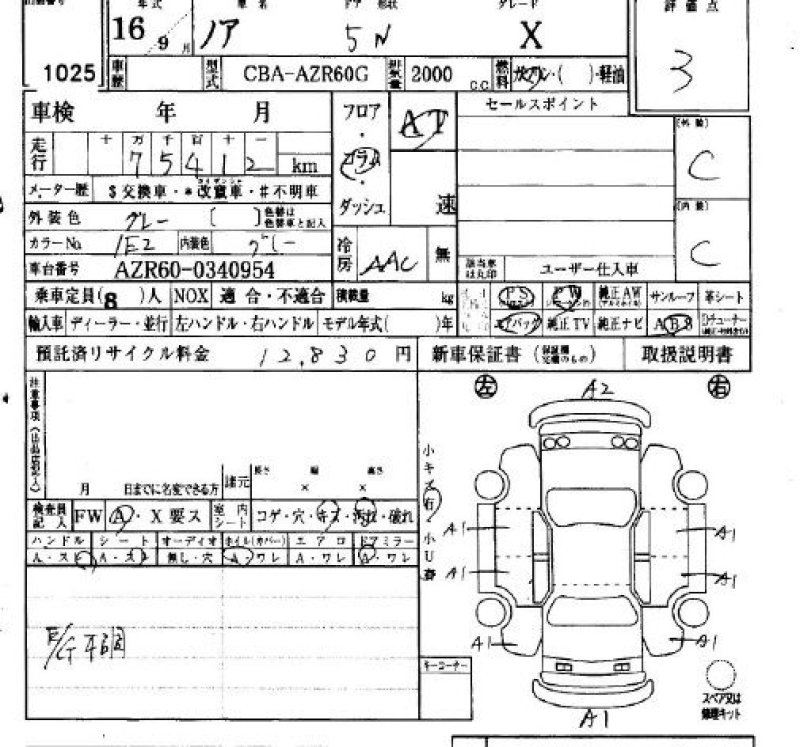 年式 車名 ドア 形状 グレード 評価点
16 9月 ノア 5 X 3
1025 車歴 型式 CBA-AZR60G 排気量 2000 c.c. 燃料 ガソリン・( )・軽油
車検 年 月 フロア・コラム・ダッシュ AT 速 セールスポイント
(外装) C
走行 十 万 千 百 十 一
75412 km
メーター歴 $交換車・*改竄車・#不明車
(内装) C
外装色 グレー [ ] 色替は色替車と記入
カラーNo. 1E2 内装色 グレー 冷房 AAC 無
車台番号 AZR60-0340954 該当車は丸印 ユーザー仕入車
乗車定員(8)人 NOX 適合・不適合 積載量 kg PS PW 純正AW サンルーフ 革シート
輸入車 ディーラー・並行 左ハンドル・右ハンドル モデル年式( )年 エアバッグ 純正TV 純正ナビ ABS
預託済リサイクル料金 12,830 円 新車保証書 取扱説明書
左 右
A2
注意事項(出品店記入)
小キズ有・小U有
月 日までに名変できる方 諸元 長さ × 幅 × 高さ
検査員記入 FW A・X要ス 室内シート コゲ・穴・キズ・汚れ・破れ
ハンドル シート オーディオ ホイル(カバー) エアロ ドアミラー
A・スレ A・スレ 無し・穴 A・ワレ A・ワレ A・ワレ
A1 A1
A1 A1
A1 A1
キーコーナー
スペア又は修理キット
A1